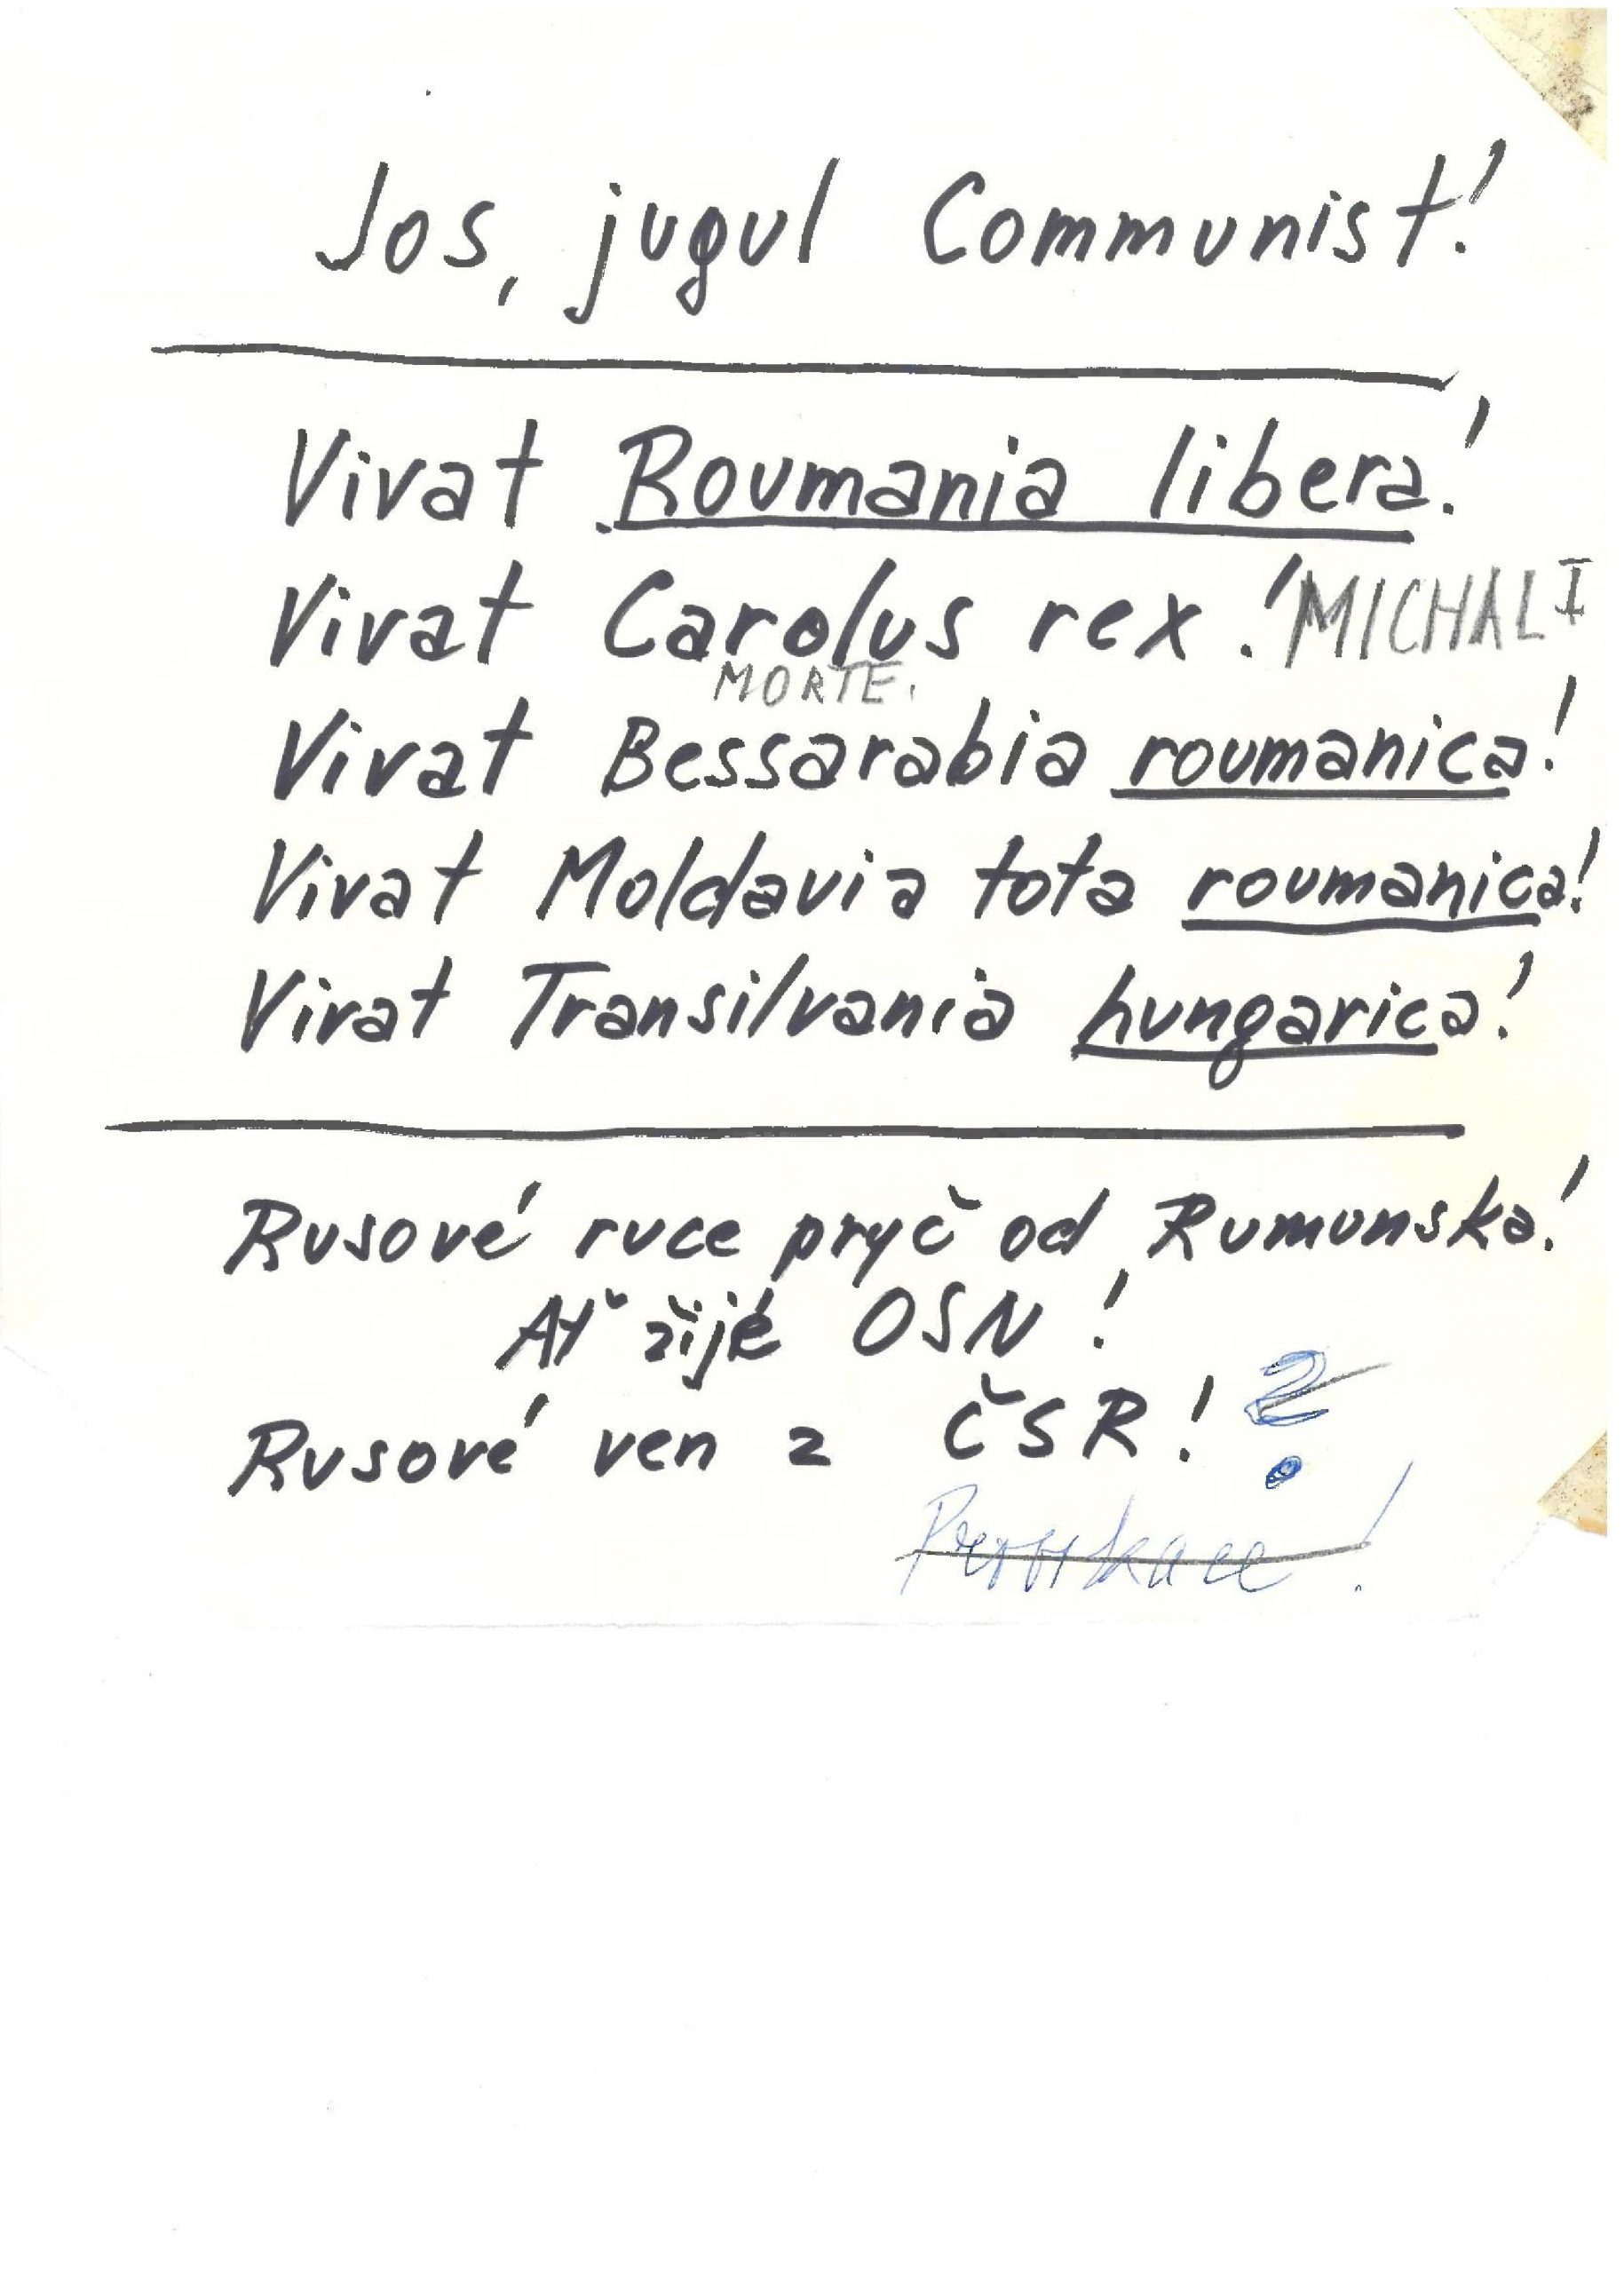 Jos, jugul Communist!
Vivat Roumania libera!
Vivat Carolus rex! MICHAL I
MORTE.
Vivat Bessarabia roumanica!
Vivat Moldavia tota roumanica!
Vivat Transilvania hungarica!
Rusové ruce pryč od Rumunska!
Ať žijé OSN!
Rusové ven z ČSR! ?
Provokace!